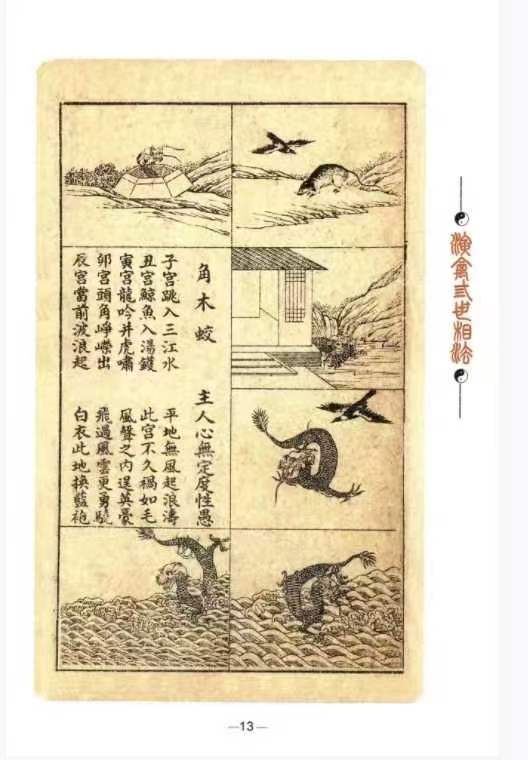 演禽弎世相法
角木蛟 主人心無定度性愚
子宮跳入三江水 平地無風起浪濤
丑宮鯨魚入湯鑊 此宮不久禍如毛
寅宮龍吟并虎嘯 風聲之內逞英豪
卯宮頭角崢嶸出 飛過風雲更勇驍
辰宮當前波浪起 白衣此地換藍袍
—13—